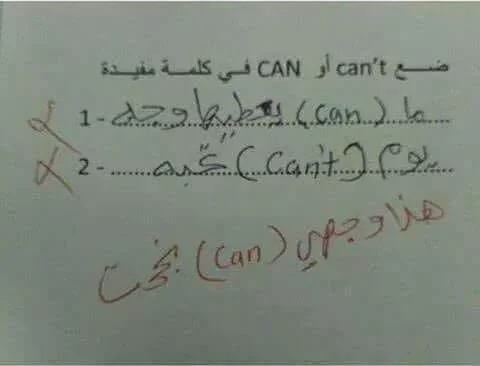 ضـــع can't أو CAN في كلمـة مفيدة
1 - ما (can) يعطيها وجه
2 - يوم (Can't) تحبه
هذا وجهي (can) نجحت